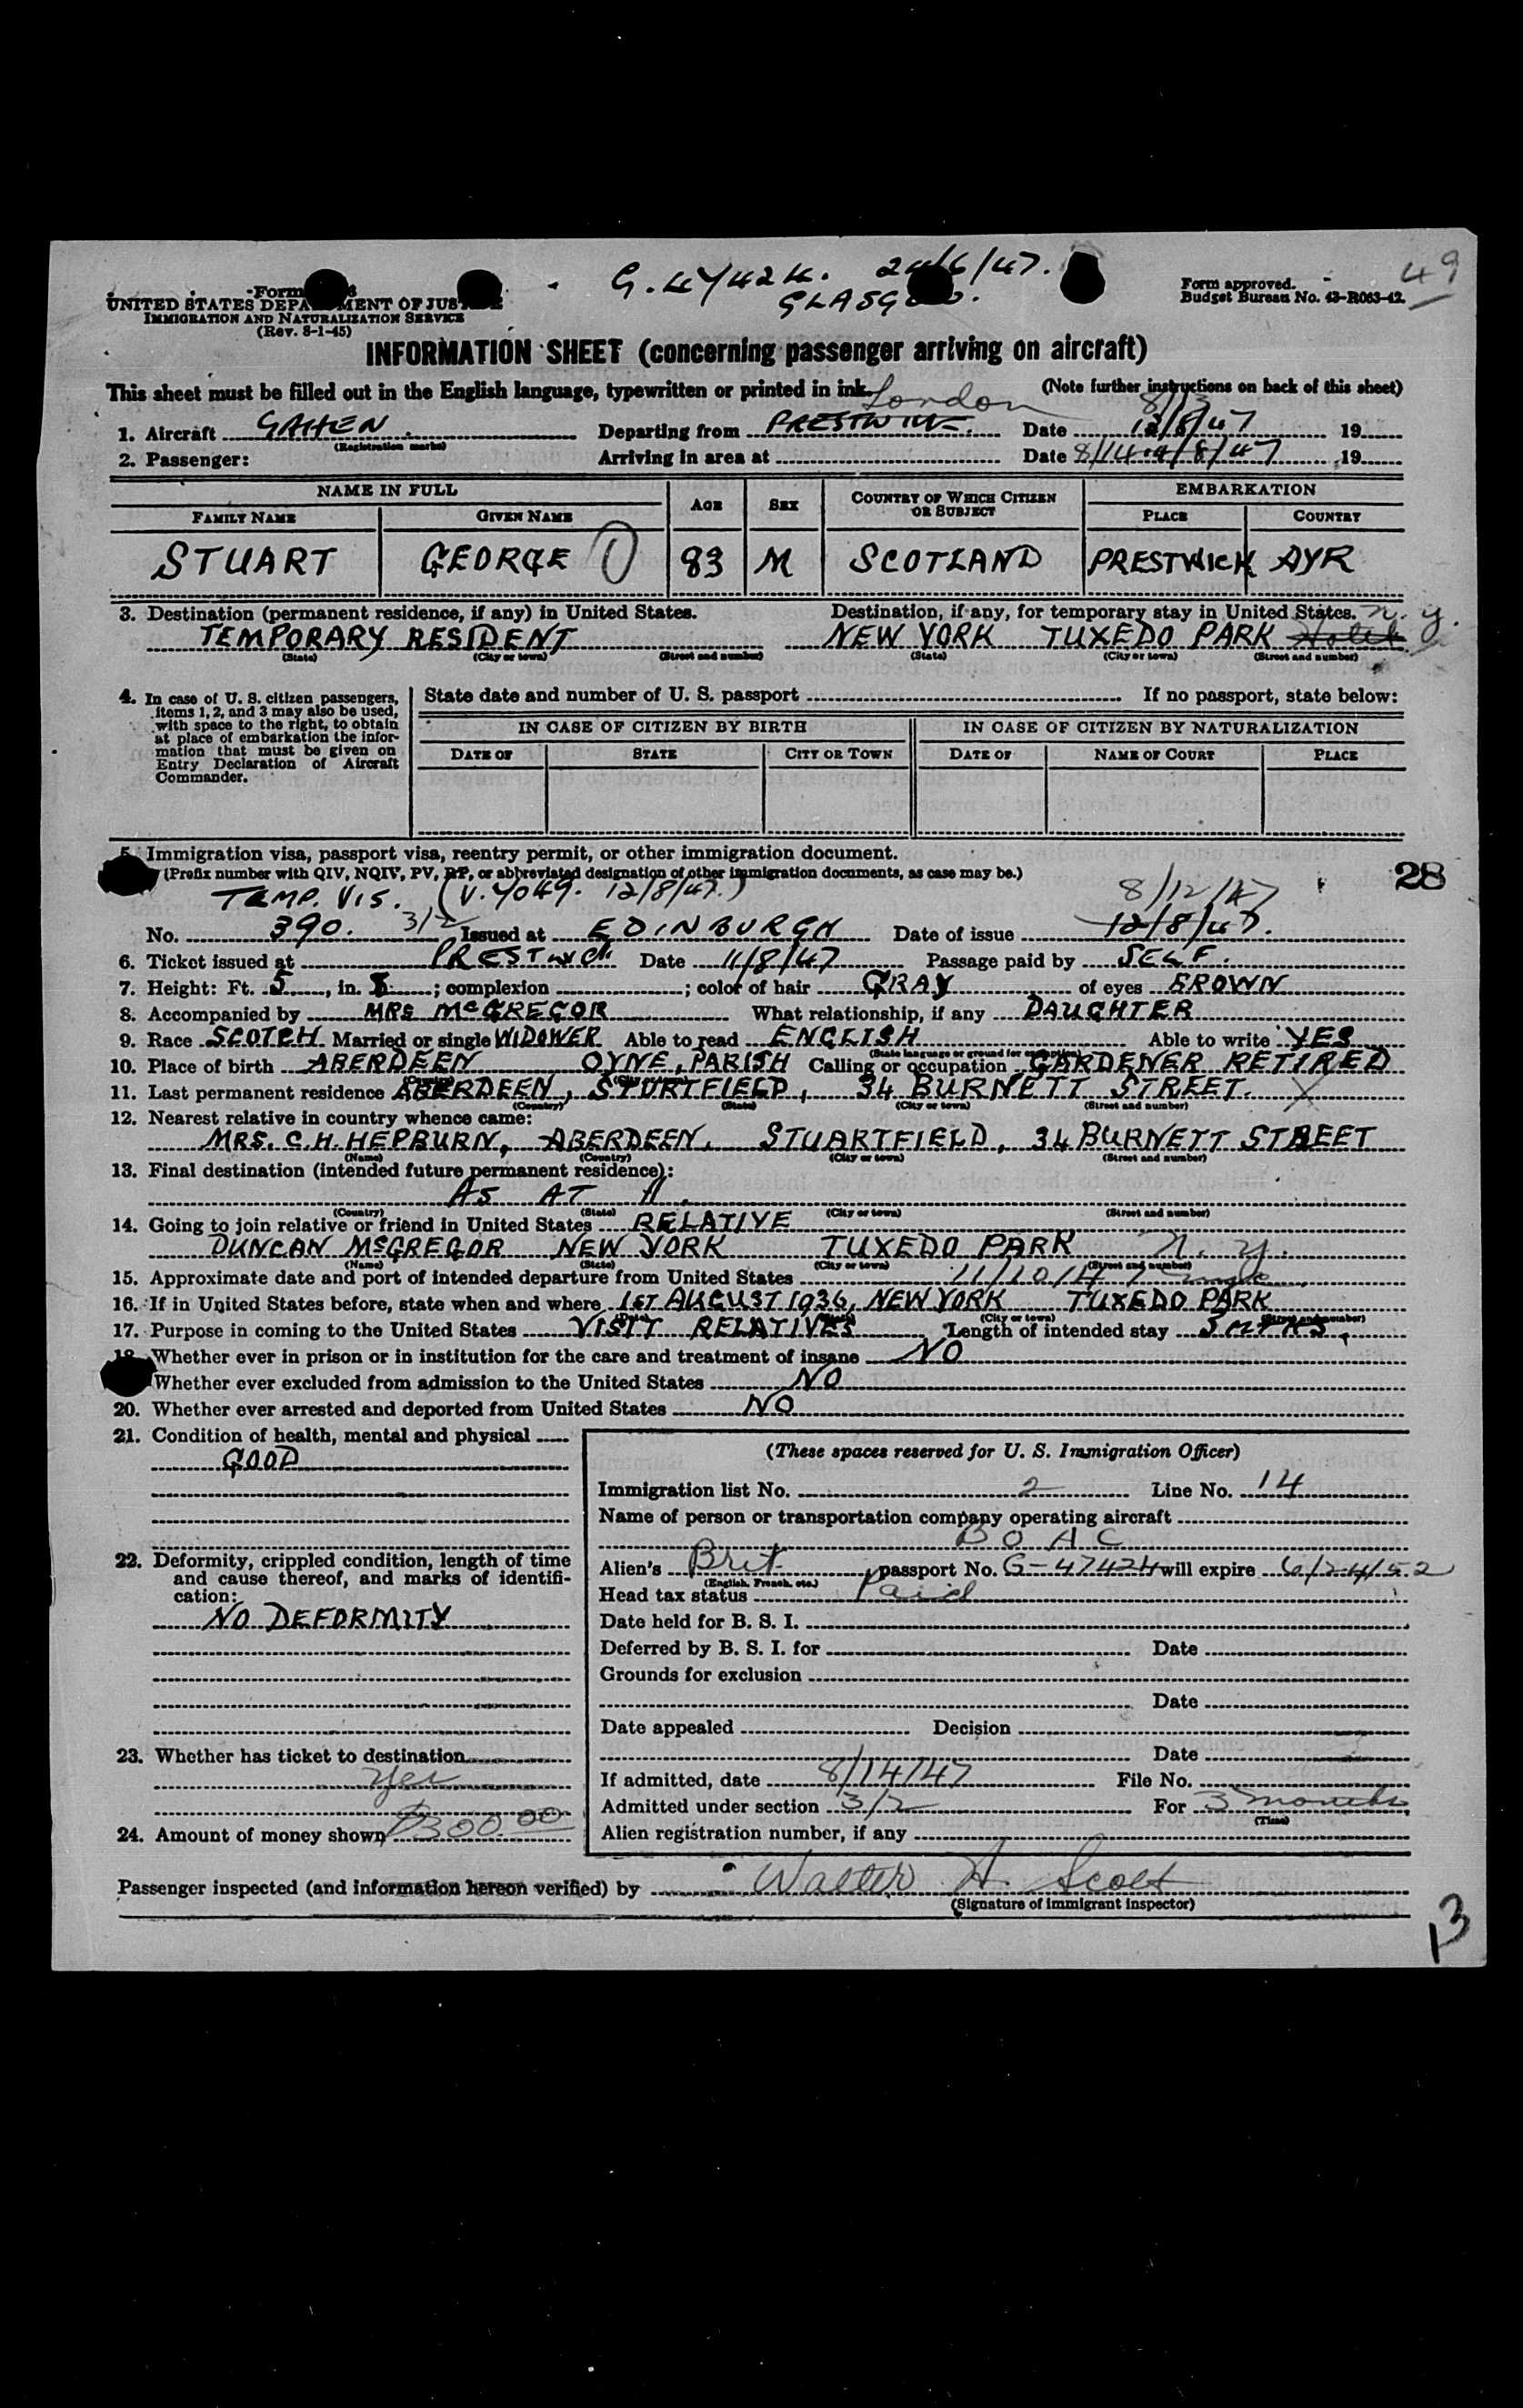 G.47424. 24/6/47.
GLASGOW.
49
Form
UNITED STATES DEPARTMENT OF JUSTICE
IMMIGRATION AND NATURALIZATION SERVICE
(Rev. 8-1-45)
Form approved.
Budget Bureau No. 43-R063-42.
INFORMATION SHEET (concerning passenger arriving on aircraft)
This sheet must be filled out in the English language, typewritten or printed in ink.
(Note further instructions on back of this sheet)
London
8/13
1. Aircraft GAHEN. (Registration marks) Departing from PRESTWICK. Date 13/8/47 19
2. Passenger: Arriving in area at Date 8/14 14/8/47 19
NAME IN FULL AGE SEX COUNTRY OF WHICH CITIZEN OR SUBJECT EMBARKATION
FAMILY NAME GIVEN NAME PLACE COUNTRY
STUART GEORGE 83 M SCOTLAND PRESTWICK AYR
3. Destination (permanent residence, if any) in United States. Destination, if any, for temporary stay in United States. N.Y.
TEMPORARY RESIDENT NEW YORK TUXEDO PARK
(State) (City or town) (Street and number) (State) (City or town) (Street and number)
4. In case of U. S. citizen passengers, items 1, 2, and 3 may also be used, with space to the right, to obtain at place of embarkation the information that must be given on Entry Declaration of Aircraft Commander.
State date and number of U. S. passport If no passport, state below:
IN CASE OF CITIZEN BY BIRTH IN CASE OF CITIZEN BY NATURALIZATION
DATE OF STATE CITY OR TOWN DATE OF NAME OF COURT PLACE
5. Immigration visa, passport visa, reentry permit, or other immigration document.
(Prefix number with QIV, NQIV, PV, RP, or abbreviated designation of other immigration documents, as case may be.)
28
TEMP. VIS. (V.7049. 12/8/47.) 8/12/47
No. 390. 3/2 Issued at EDINBURGH Date of issue 12/8/47.
6. Ticket issued at PRESTWCK Date 11/8/47 Passage paid by SELF.
7. Height: Ft. 5, in. ; complexion ; color of hair GRAY of eyes BROWN
8. Accompanied by MRS McGREGOR What relationship, if any DAUGHTER
9. Race SCOTCH Married or single WIDOWER Able to read ENGLISH Able to write YES
(State language or ground for exemption)
10. Place of birth ABERDEEN OYNE, PARISH Calling or occupation GARDENER RETIRED
11. Last permanent residence ABERDEEN, STURTFIELD, 34 BURNETT STREET. X
(Country) (State) (City or town) (Street and number)
12. Nearest relative in country whence came:
MRS. C.H. HEPBURN, ABERDEEN, STUARTFIELD, 34 BURNETT STREET
(Name) (Country) (City or town) (Street and number)
13. Final destination (intended future permanent residence):
AS AT 11.
(Country) (State) (City or town) (Street and number)
14. Going to join relative or friend in United States RELATIVE
DUNCAN McGREGOR NEW YORK TUXEDO PARK N.Y.
(Name) (State) (City or town) (Street and number)
15. Approximate date and port of intended departure from United States 11/10/47
16. If in United States before, state when and where 1ST AUGUST 1936, NEW YORK TUXEDO PARK
(City or town) (Street and number)
17. Purpose in coming to the United States VISIT RELATIVES Length of intended stay 3 MTHS.
18. Whether ever in prison or in institution for the care and treatment of insane NO
Whether ever excluded from admission to the United States NO
20. Whether ever arrested and deported from United States NO
21. Condition of health, mental and physical
GOOD
22. Deformity, crippled condition, length of time and cause thereof, and marks of identification:
NO DEFORMITY
23. Whether has ticket to destination
Yes
24. Amount of money shown $300.00
(These spaces reserved for U. S. Immigration Officer)
Immigration list No. 2 Line No. 14
Name of person or transportation company operating aircraft
B O A C
Alien's Brit, passport No. G-47424 will expire 6/24/52
(English, French, etc.)
Head tax status Paid
Date held for B. S. I.
Deferred by B. S. I. for Date
Grounds for exclusion
Date
Date appealed Decision
Date
If admitted, date 8/14/47 File No.
Admitted under section 3/2 For 3 months
(Time)
Alien registration number, if any
Passenger inspected (and information hereon verified) by Walter A. Scott
(Signature of immigrant inspector)
13